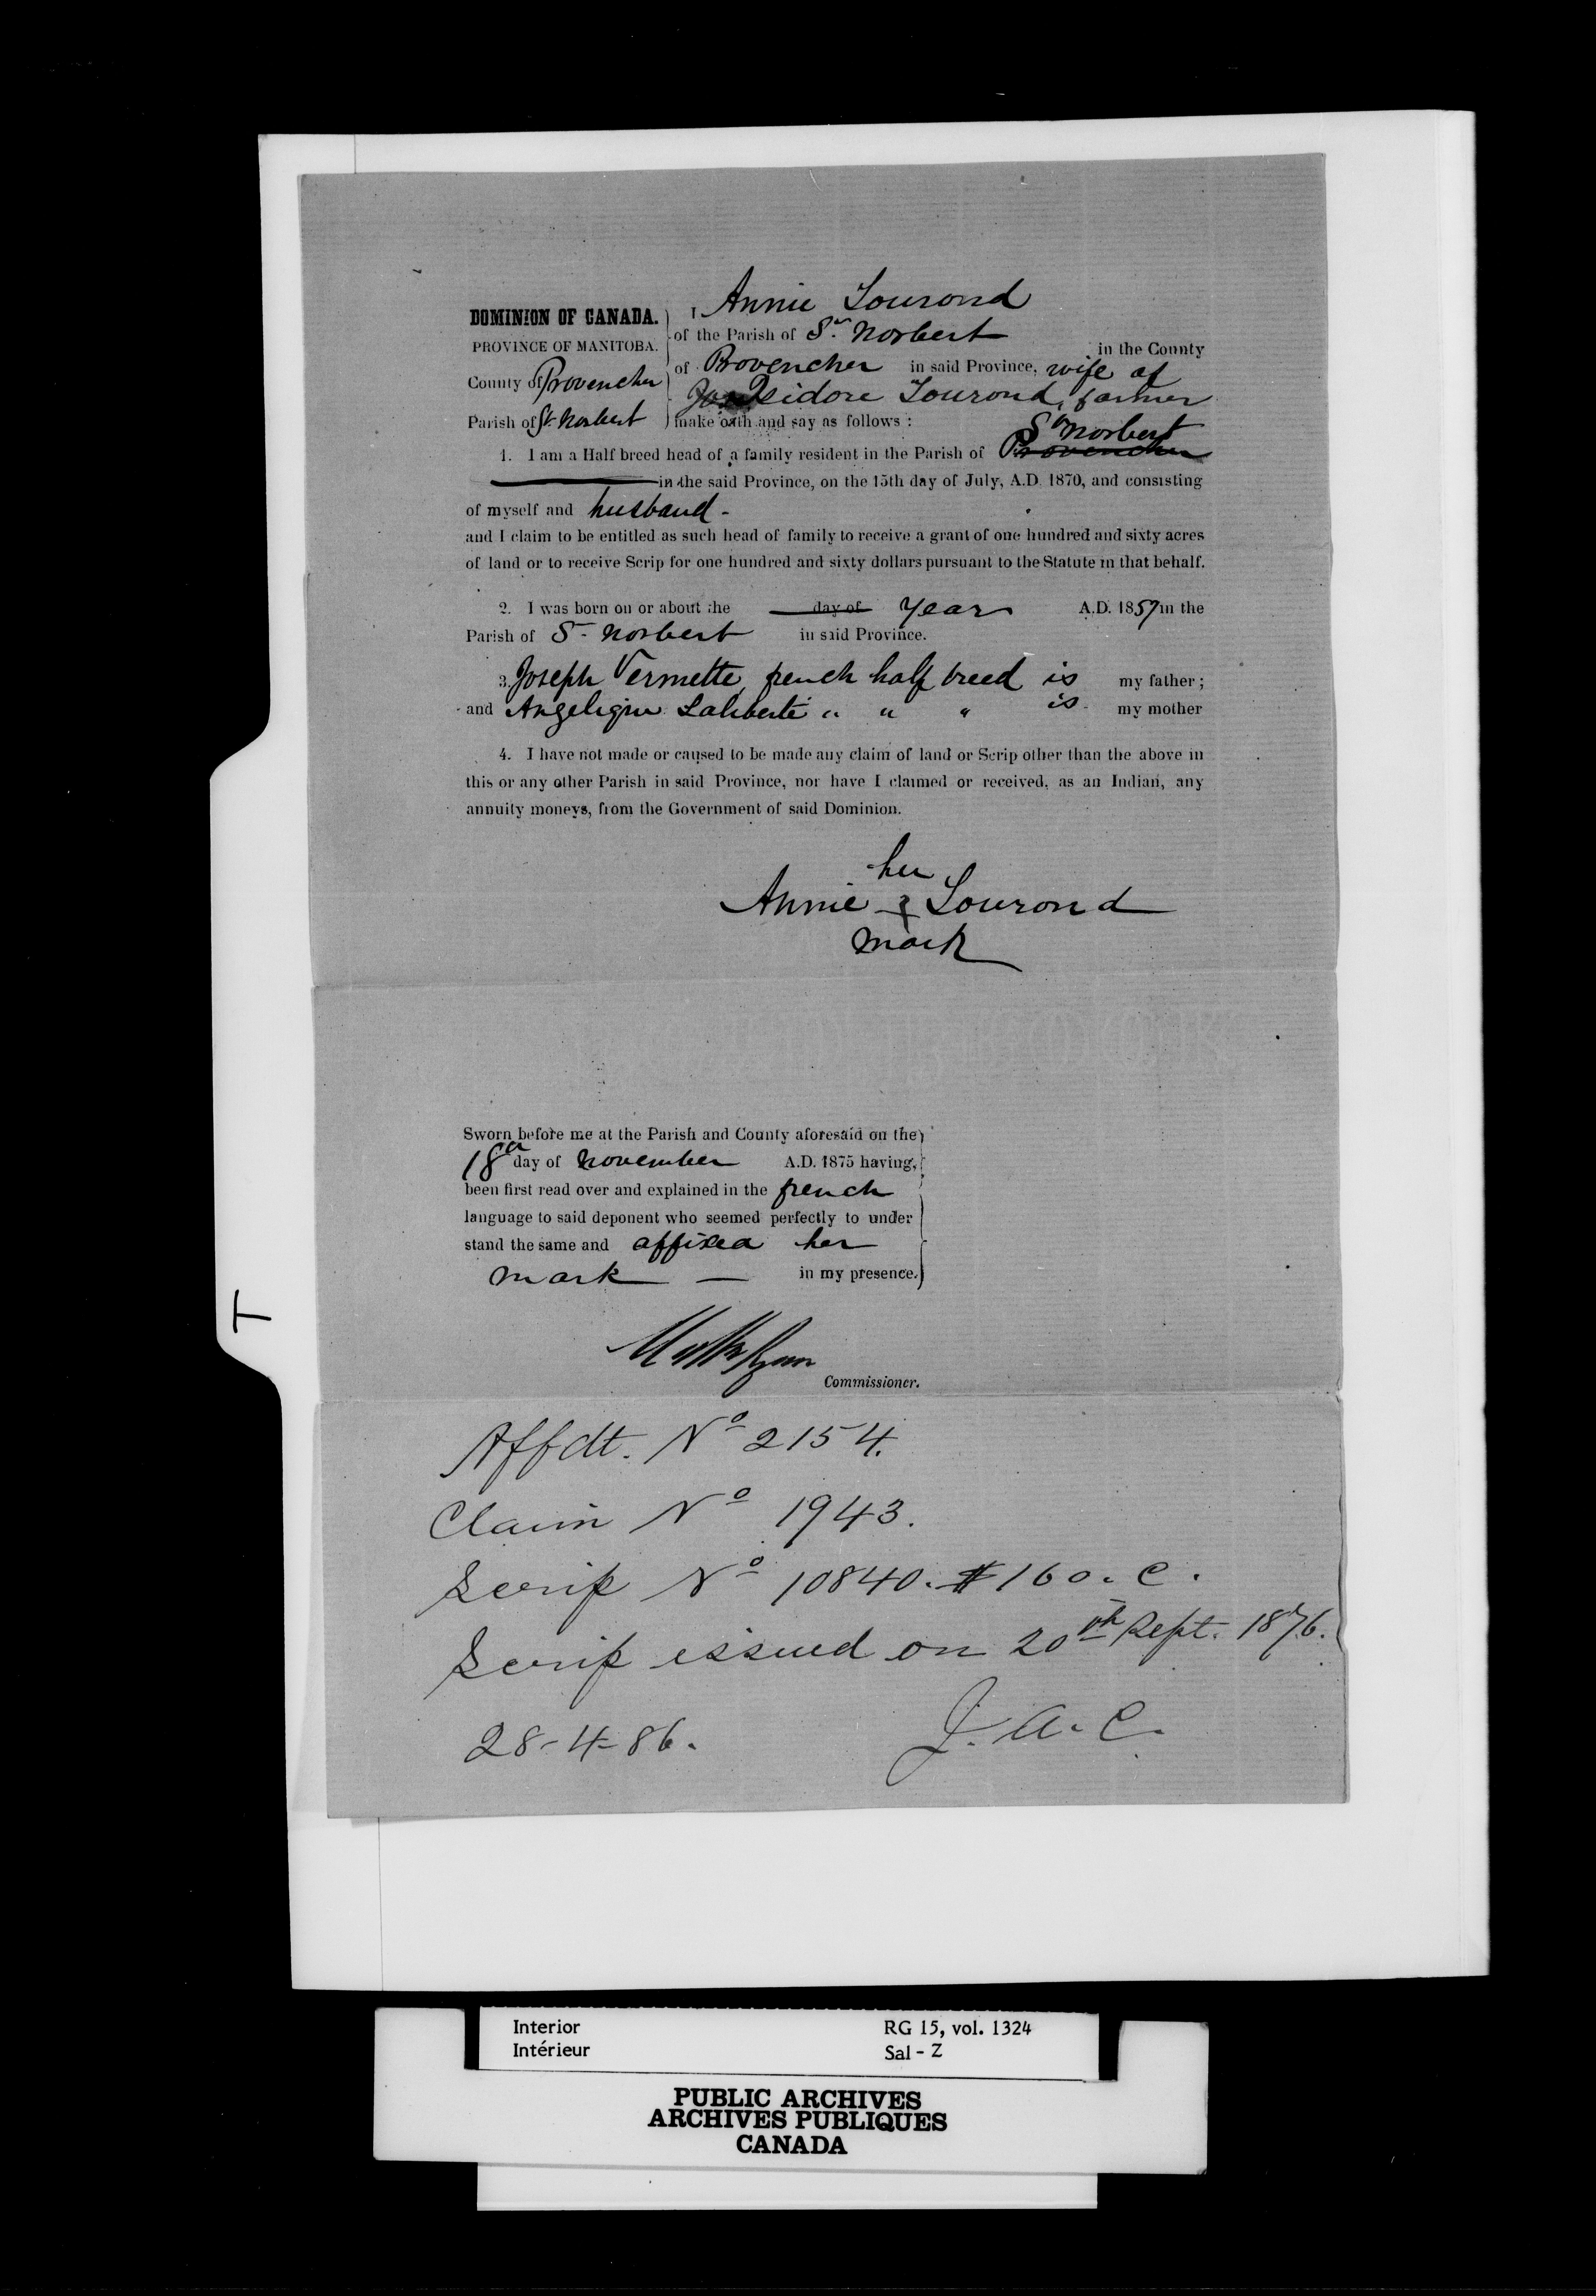 DOMINION OF CANADA.
PROVINCE OF MANITOBA.
County of Provencher
Parish of St. Norbert
I Annie Tourond
of the Parish of St. Norbert in the County
of Provencher in said Province, wife of
Isidore Tourond, farmer
make oath and say as follows:
1. I am a Half breed head of a family resident in the Parish of Provencher St Norbert
in the said Province, on the 15th day of July, A.D. 1870, and consisting
of myself and husband-
and I claim to be entitled as such head of family to receive a grant of one hundred and sixty acres
of land or to receive Scrip for one hundred and sixty dollars pursuant to the Statute in that behalf.
2. I was born on or about the day of year A.D. 1857 in the
Parish of St. Norbert in said Province.
3. Joseph Vermette, french half breed is my father;
and Angelique Laliberté " " " is my mother
4. I have not made or caused to be made any claim of land or Scrip other than the above in
this or any other Parish in said Province, nor have I claimed or received, as an Indian, any
annuity moneys, from the Government of said Dominion.
her
Annie X Tourond
mark
Sworn before me at the Parish and County aforesaid on the
18th day of November A.D. 1875 having,
been first read over and explained in the french
language to said deponent who seemed perfectly to under
stand the same and affixed her
mark — in my presence.
Commissioner.
Affdt. No 2154.
Claim No 1943.
Scrip No 10840. $160. C.
Scrip issued on 20th Sept. 1876.
28-4-86. J. A. C.
T
Interior RG 15, vol. 1324
Intérieur Sal - Z
PUBLIC ARCHIVES
ARCHIVES PUBLIQUES
CANADA